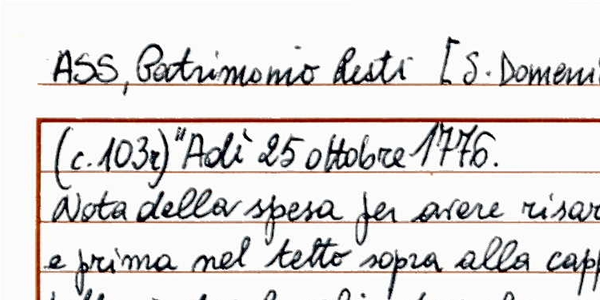 ASS, Patrimonio Resti [S. Domeni
(c. 103r) "Adì 25 ottobre 1776.
Nota della spesa per avere risar
e prima nel tetto sopra alla capp